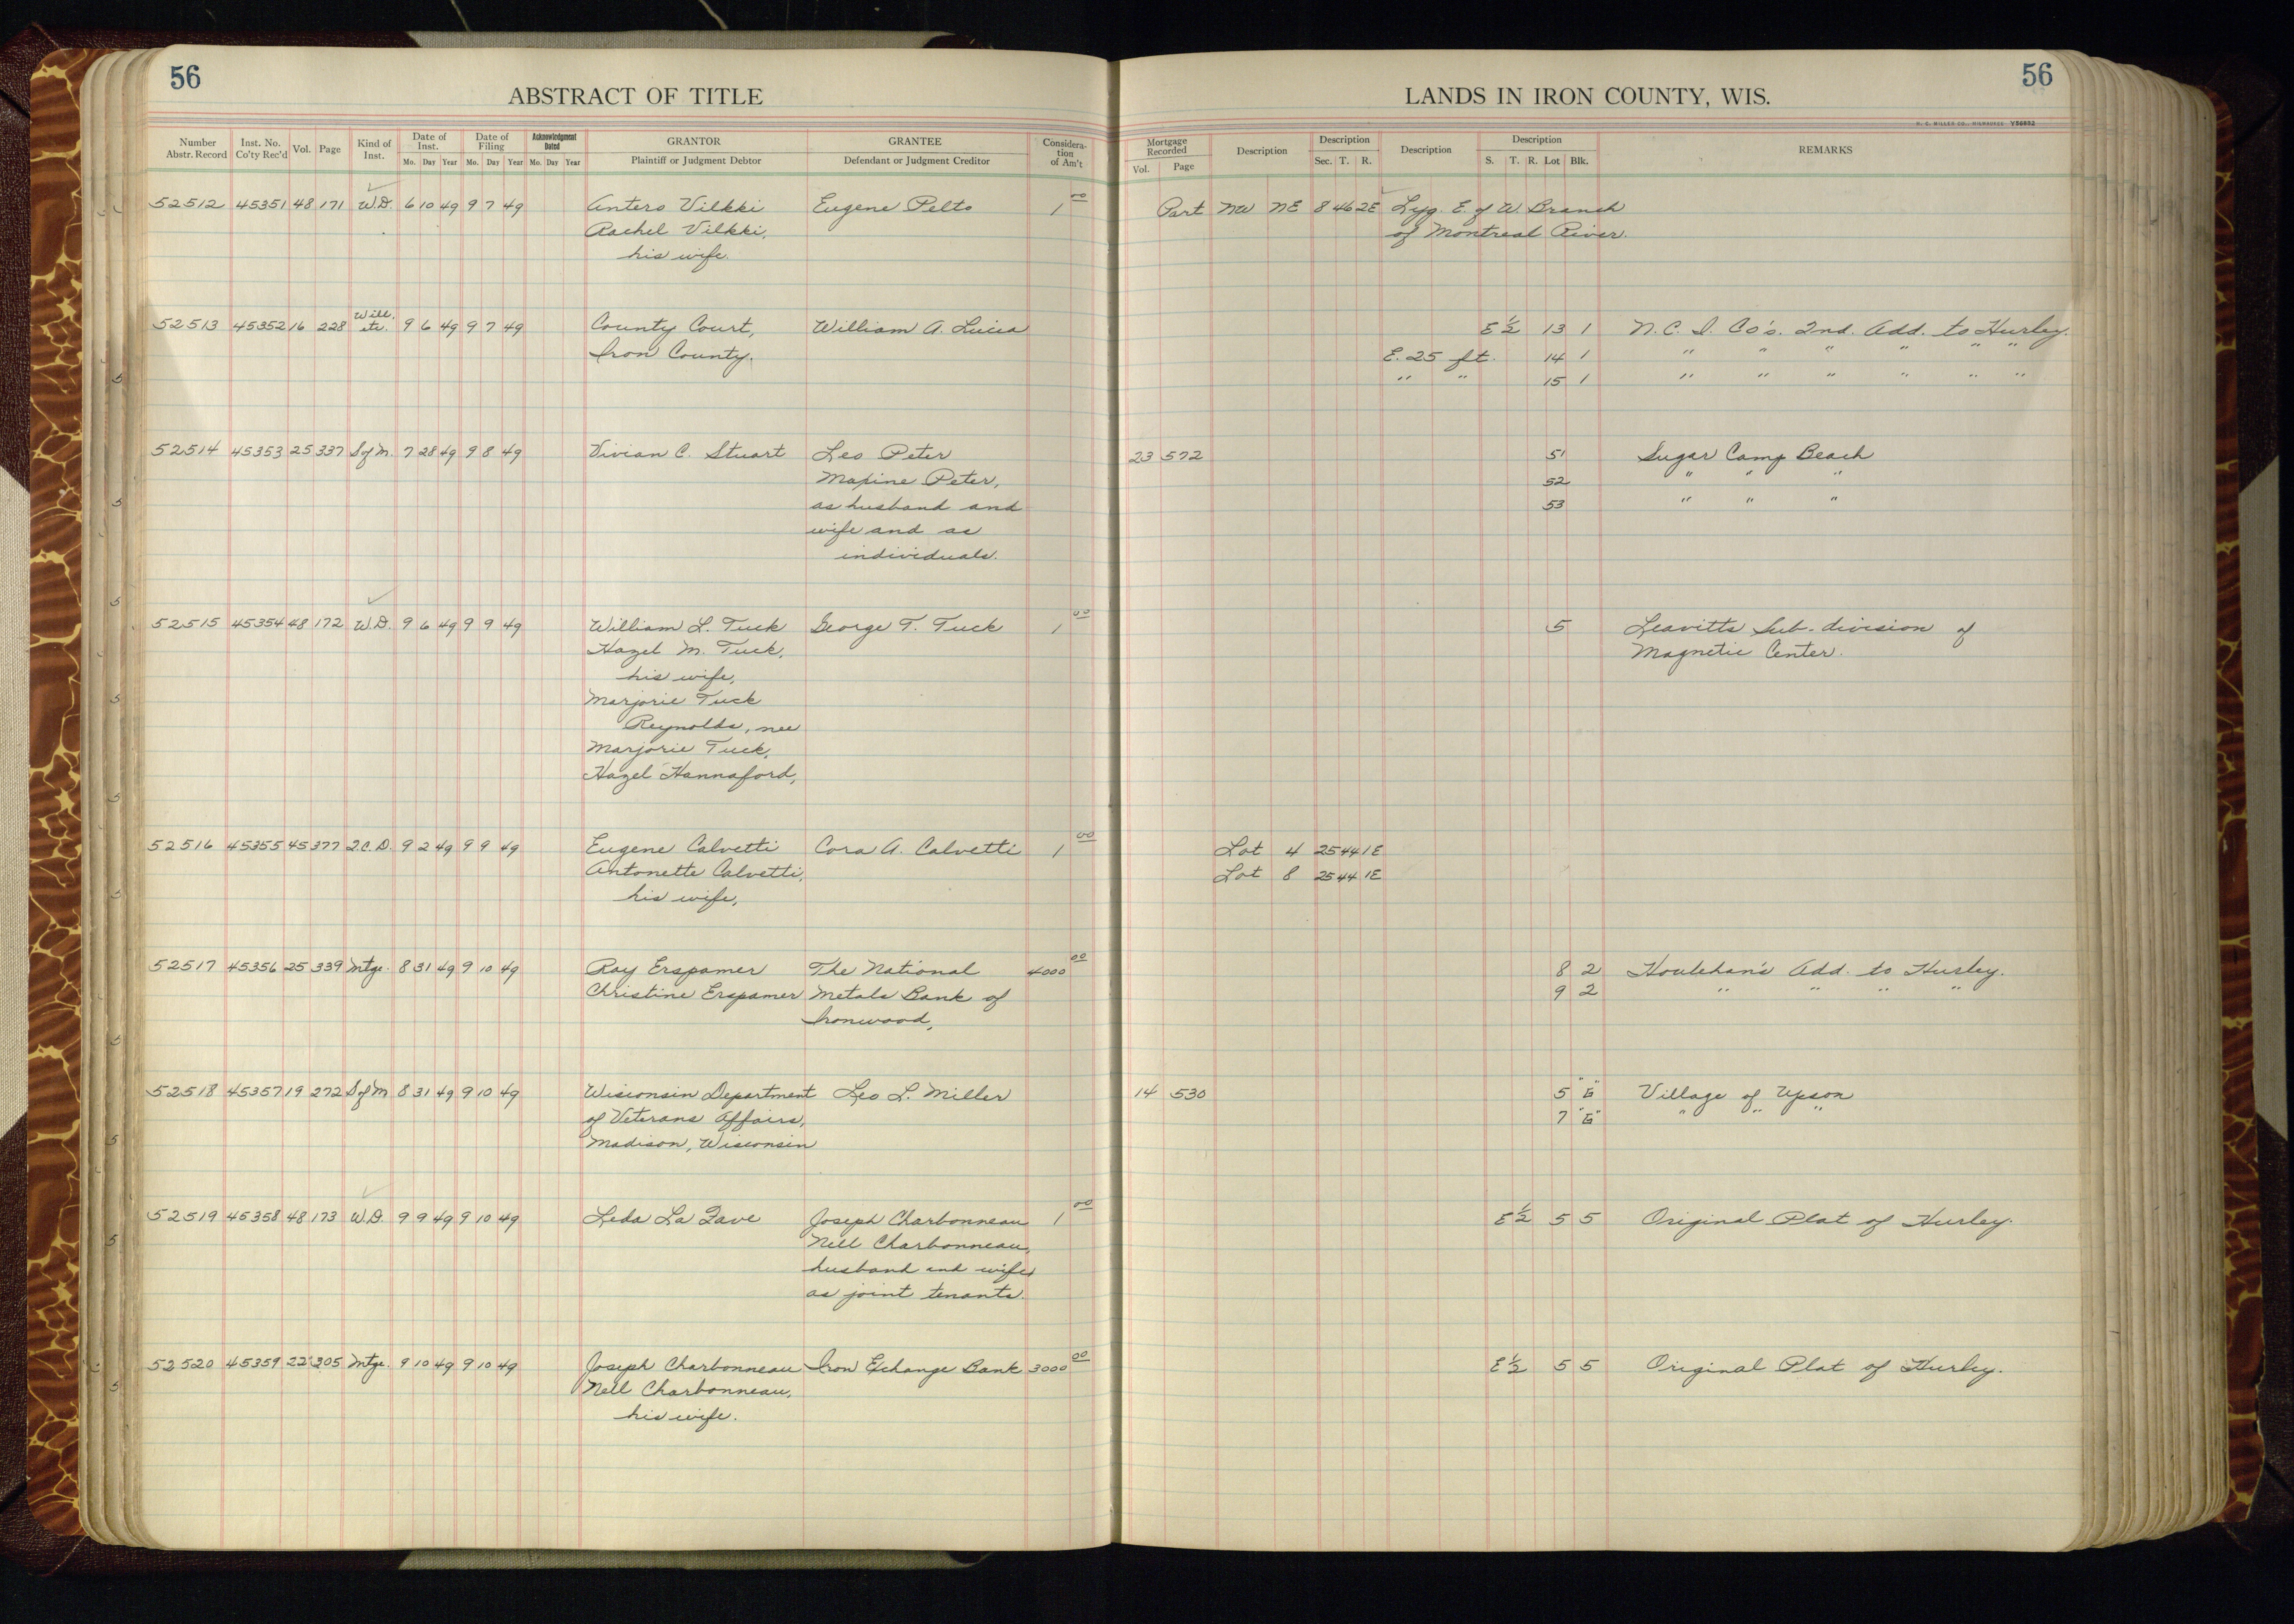 56
ABSTRACT OF TITLE
Number Abstr. Record Inst. No. Co'ty Rec'd Vol. Page Kind of Inst. Date of Inst. Mo. Day Year Date of Filing Mo. Day Year Acknowledgment Dated Mo. Day Year GRANTOR Plaintiff or Judgment Debtor GRANTEE Defendant or Judgment Creditor Considera-tion of Am't
52512 45351 48 171 W.D. 6 10 49 9 7 49 Antero Vilkki Eugene Pelto 1 00
Rachel Vilkki,
his wife.
52513 45352 16 228 Will, etc. 9 6 49 9 7 49 County Court, William A. Lucia
Iron County.
52514 45353 25 337 S of M. 7 28 49 9 8 49 Vivian C. Stuart Leo Peter
Maxine Peter,
as husband and
wife and as
individuals.
52515 45354 48 172 W.D. 9 6 49 9 9 49 William L. Tuck George T. Tuck 1 00
Hazel M. Tuck,
his wife,
Marjorie Tuck
Reynolds, nee
Marjorie Tuck,
Hazel Hannaford,
52516 45355 45 377 Q.C.D. 9 2 49 9 9 49 Eugene Calvetti Cora A. Calvetti 1 00
Antonette Calvetti,
his wife,
52517 45356 25 339 Mtge. 8 31 49 9 10 49 Ray Erspamer The National 4000 00
Christine Erspamer Metals Bank of
Ironwood,
52518 45357 19 272 S of M 8 31 49 9 10 49 Wisconsin Department Leo L. Miller
of Veterans Affairs,
Madison, Wisconsin
52519 45358 48 173 W.D. 9 9 49 9 10 49 Leda La Fave Joseph Charbonneau 1 00
Nell Charbonneau,
husband and wife,
as joint tenants.
52520 45359 22 305 Mtge. 9 10 49 9 10 49 Joseph Charbonneau Iron Exchange Bank 3000 00
Nell Charbonneau,
his wife.
56
LANDS IN IRON COUNTY, WIS.
H. C. MILLER CO., MILWAUKEE
Mortgage Recorded Vol. Page Description Description Sec. T. R. Description Description S. T. R. Lot Blk. REMARKS
Part NW NE 8 46 2E Lyg. E. of W. Branch
of Montreal River.
E 1/2 13 1 N. C. I. Co's. 2nd. Add. to Hurley.
E. 25 ft. 14 1 " " " " " "
" " 15 1 " " " " " "
23 572 51 Sugar Camp Beach
52 " " "
53 " " "
5 Leavitts Sub-division of
Magnetic Center.
Lot 4 25 44 1E
Lot 8 25 44 1E
8 2 Houlehan's Add. to Hurley.
9 2 " " " "
14 530 5 "G" Village of Upson
7 "G" " " "
E 1/2 5 5 Original Plat of Hurley.
E 1/2 5 5 Original Plat of Hurley.